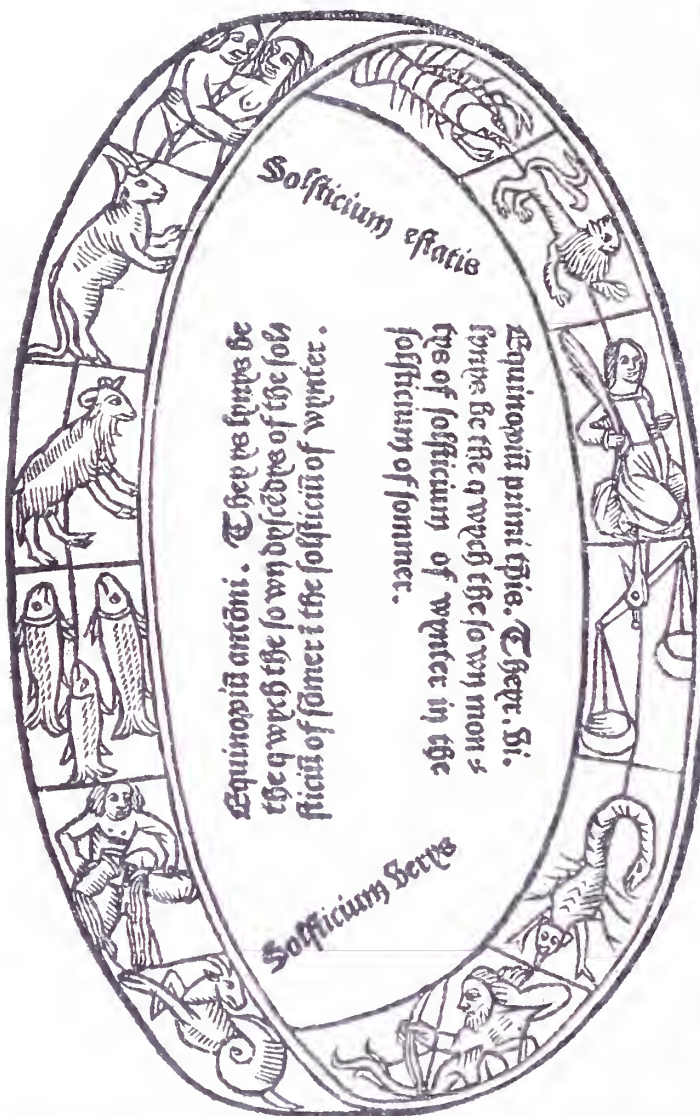 Solſticium eſtatis
Equinopiũ primi tp̃is. Theyr. Vi.
ſynys be the q wych the ſown mon⸗
tys of ſolſticium of wynter in the
ſolſticium of ſommer.
Equinopiũ antõni. They ys ſynys be
the q wych the ſown dyſcẽdys of the ſolſ
ſticiũ of ſõmer ĩ the ſolſticiũ of wynter.
Solſticium Verys